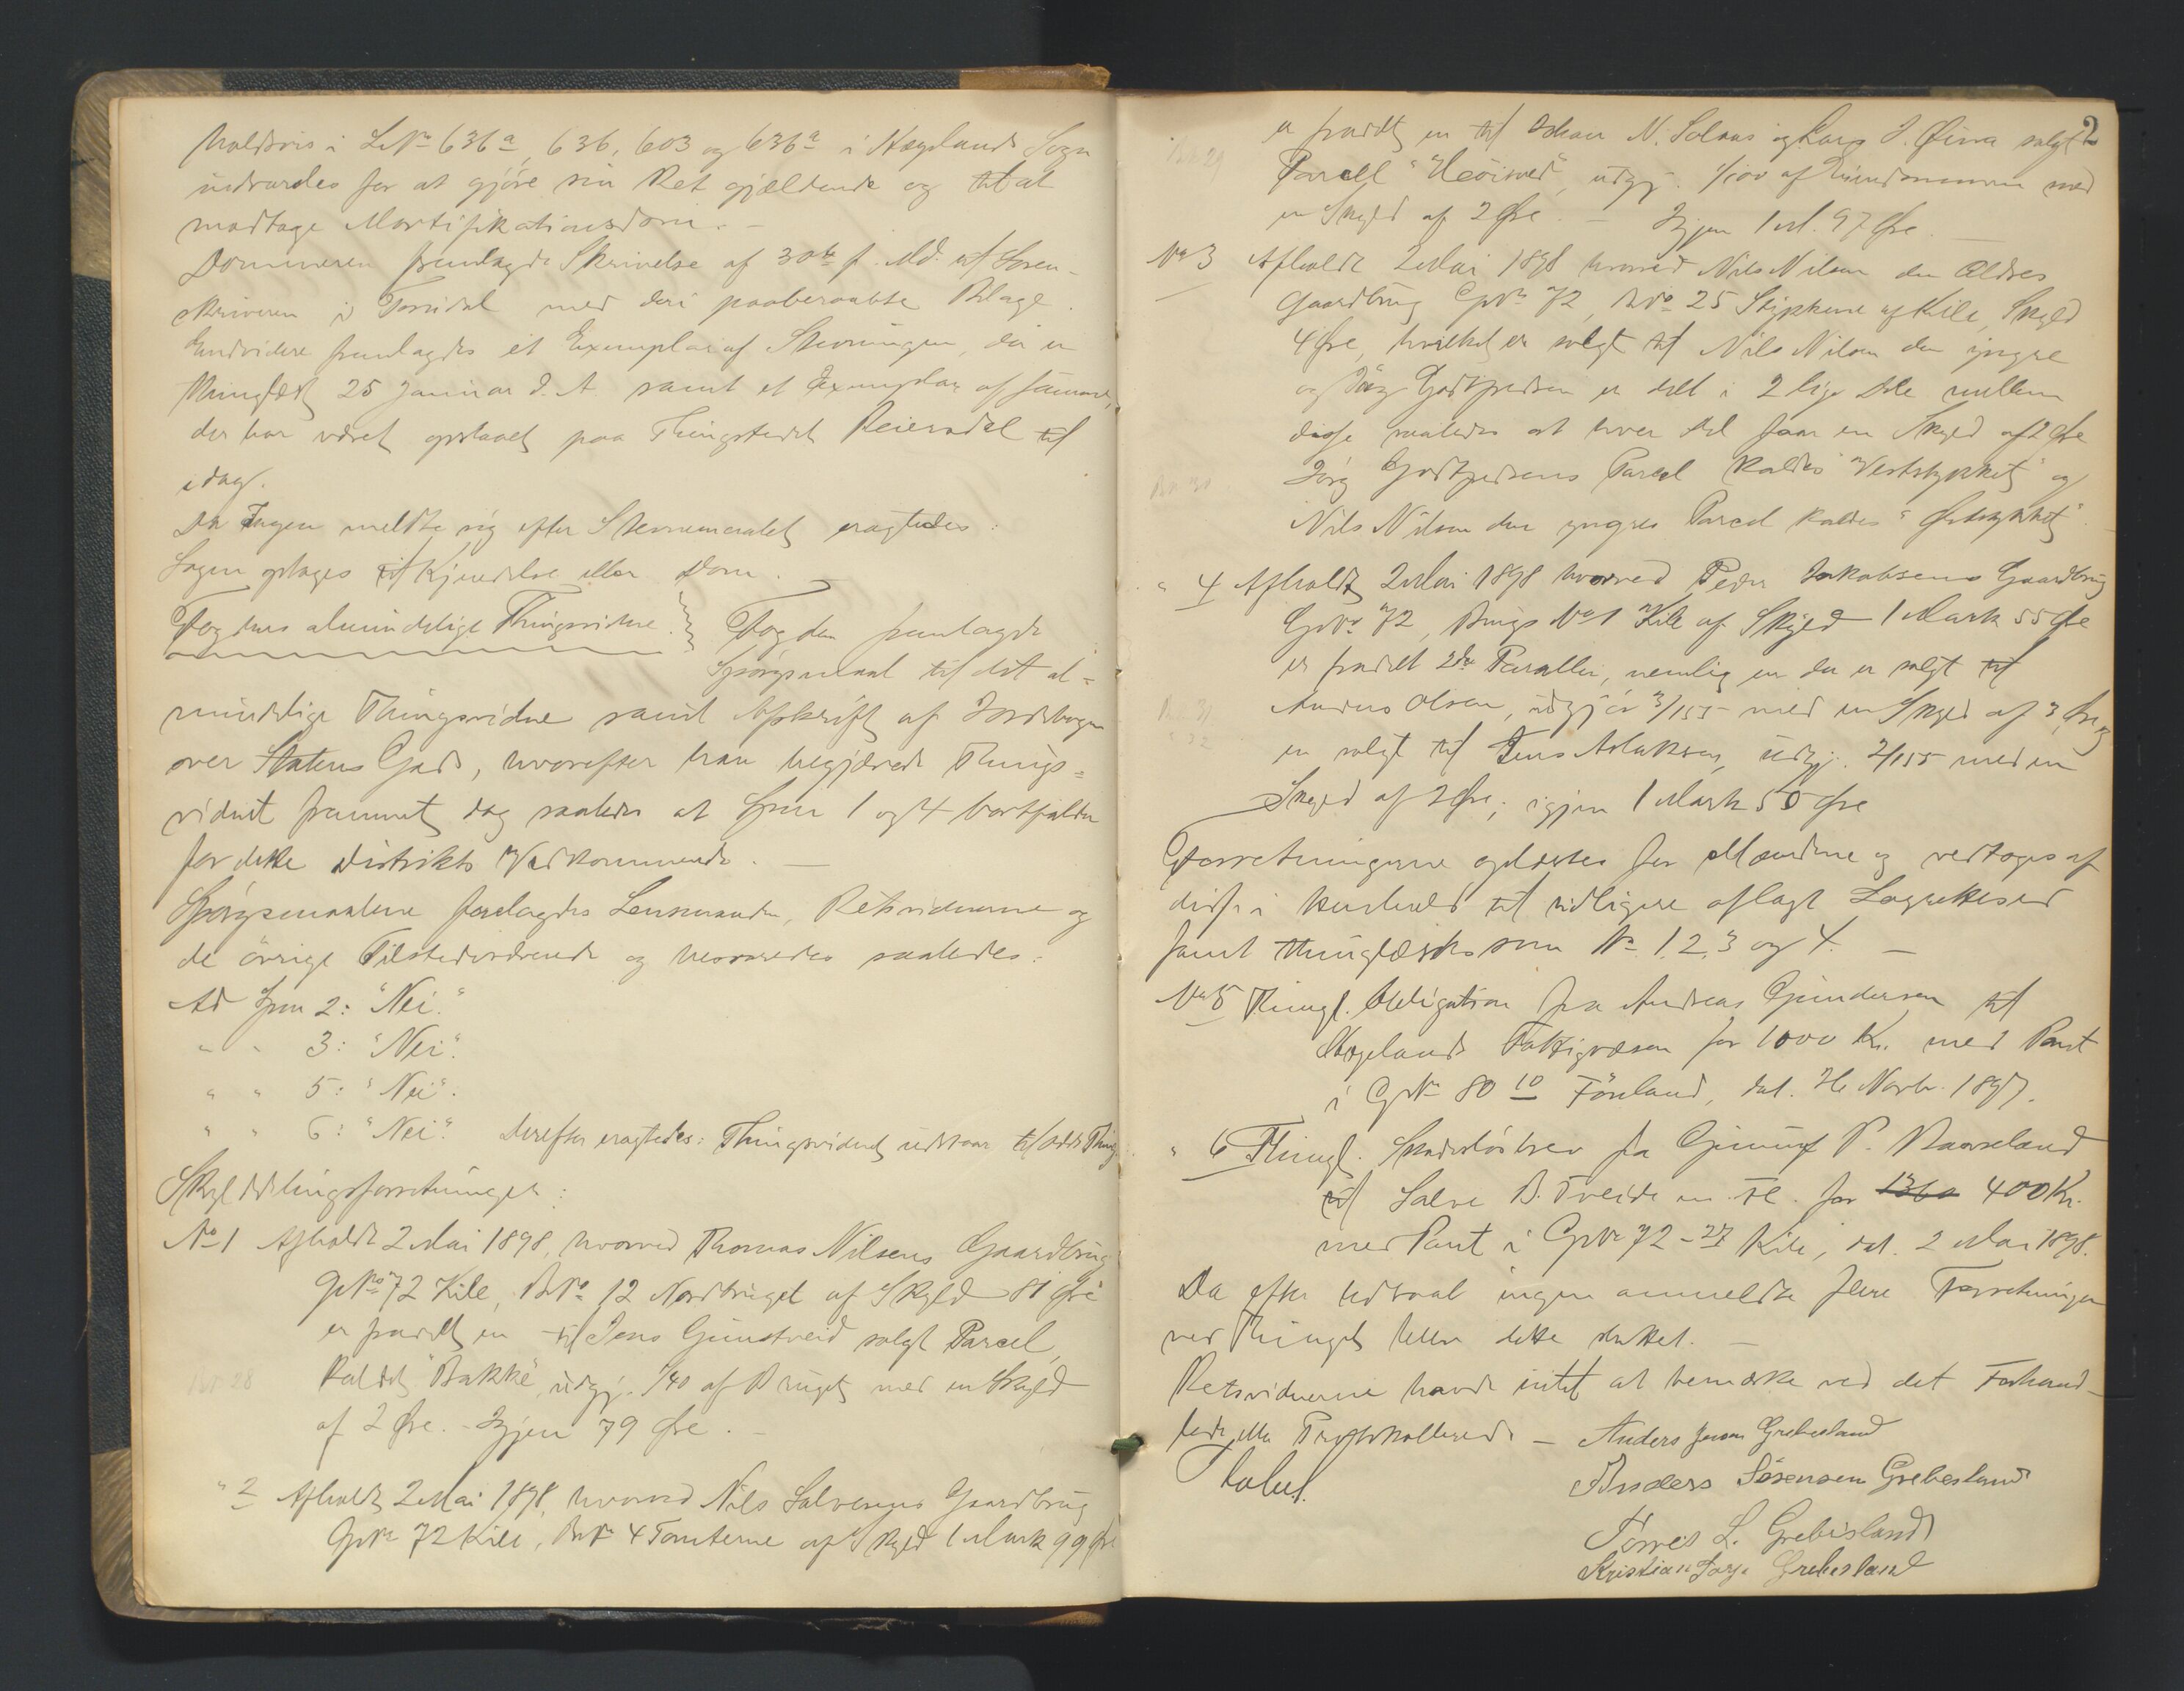 holdsvis i LNo 636a, 636, 603 og 636a i Høgelands Sogn
indvarsles for at gjøre sin Ret gjældende og til at
modtage Mortifikationsdom. —
Dommeren fremlagde Skrivelse af 30te f. Md. til Soren-
skriveren i Torridal med deri paaberaabte Bilage.
Endvidere fremlagdes et Exemplar af Stevningen, der er
thinglæst 25 Januar d. A. samt et Exemplar af samme,
der har været opslaaet paa Thingstedet Reiersdal til
idag.
Da Ingen meldte sig efter Stevnemaalet eragtedes:
Sagen optages til Kjendelse eller Dom.
Fogdens almindelige Thingsvidne. Fogden fremlagde
Spørgsmaal til det al=
mindelige Thingsvidne samt Afskrift af Jordebogen
over Statens Gods, hvorefter han begjærede Things=
vidnet fremmet dog saaledes at Spm 1 og 4 bortfalder
for dette Distrikts Vedkommende. —
Spørgsmaalene forelagdes Lensmanden, Retsvidnerne og
de övrige Tilstedeværende og besvaredes saaledes:
Ad Spm 2: "Nei."
" " 3: "Nei".
" " 5: "Nei".
" " 6: "Nei." Derefter eragtedes: Thingsvidnet udstaar til
Skylddelingsforretninger:
No 1 Afholdt 2 Mai 1898, hvorved Thomas Nilsens Gaardbrug
GNo 72 Kile, BNo 12 Nordbruget af Skyld 81 Øre
er fraskilt en til Jens Gunstveid solgt Parcel,
Bno 28 kaldet "Bakke", udgj. 1/40 af Bruget med en Skyld
af 2 Øre. - Igjen 79 Øre. -
" 2 Afholdt 2 Mai 1898, hvorved Nils Salvesens Gaardbrug
GNo 72 Kile, BNo 4 Tomterne af Skyld 1 Mark 99 Øre
2
er fraskilt en til Johan N. Solaas og Lars J. Øina solgt
Bno 29 Parcell "Heöived", udgj. 1/100 af Eiendommen med
en Skyld af 2 Øre. — Igjen 1 M. 97 Øre. —
No 3 Afholdt 2 Mai 1898 hvorved Nils Nilsen den Ældres
Gaardbrug GNo 72, BNo 25 Stykkene af Kile, Skyld
4 Øre, hvilket er solgt til Nils Nilsen den yngre
og Jörg Godtfredsen er delt i 2 lige Dele mellem
disse saaledes at hver Del faar en Skyld af 2 Øre
Jörg Godtfredsens Parcel kaldes "Veststykket" og
Bno 30 Nils Nilsen den yngres Parcel kaldes "Øststykket".
" 4 Afholdt 2 Mai 1898 hvorved Peder Jakobsens Gaardbrug
GNo 72, Brugs No 1 Kile af Skyld 1 Mark 55 Øre
er fraskilt 2de Parceller, nemlig en der er solgt til
Bno 31 Anders Olsen, udgjör 3/155 med en Skyld af 3 Øre og
" 32 en solgt til Jens Aslaksen, udgj. 2/155 med en
Skyld af 2 Øre; igjen 1 Mark 50 Øre
Forretningerne oplæstes for Mændene og vedtoges af
disse i Henhold til tidligere aflagt Lagrettesed
samt thinglæstes som No 1, 2, 3 og 4. —
No 5 Thingl. Obligation fra Andreas Gundersen til
Høgelands Fattigvæsen for 1000 Kr. med Pant
i GNo 80 10 Föreland, dat. 26 Novb. 1897.
" 6 Thingl. Skadeslösbrev fra Gunuf P. Raaseland
til Salve B. Tveide m. Fl. for 1360 400 Kr.
med Pant i GNo 72 - 27 Kile, dat. 2 Mai 1898.
Da efter Udraab ingen anmeldte flere Forretninger
ved Thinget blev dette sluttet. —
Retsvidnerne havde intet at bemærke ved det Forhand-
lede eller Protokollerede — Anders Grebesland
Anders Sørensen Grebesland
Tørres L. Grebisland
Kristian Grebesland